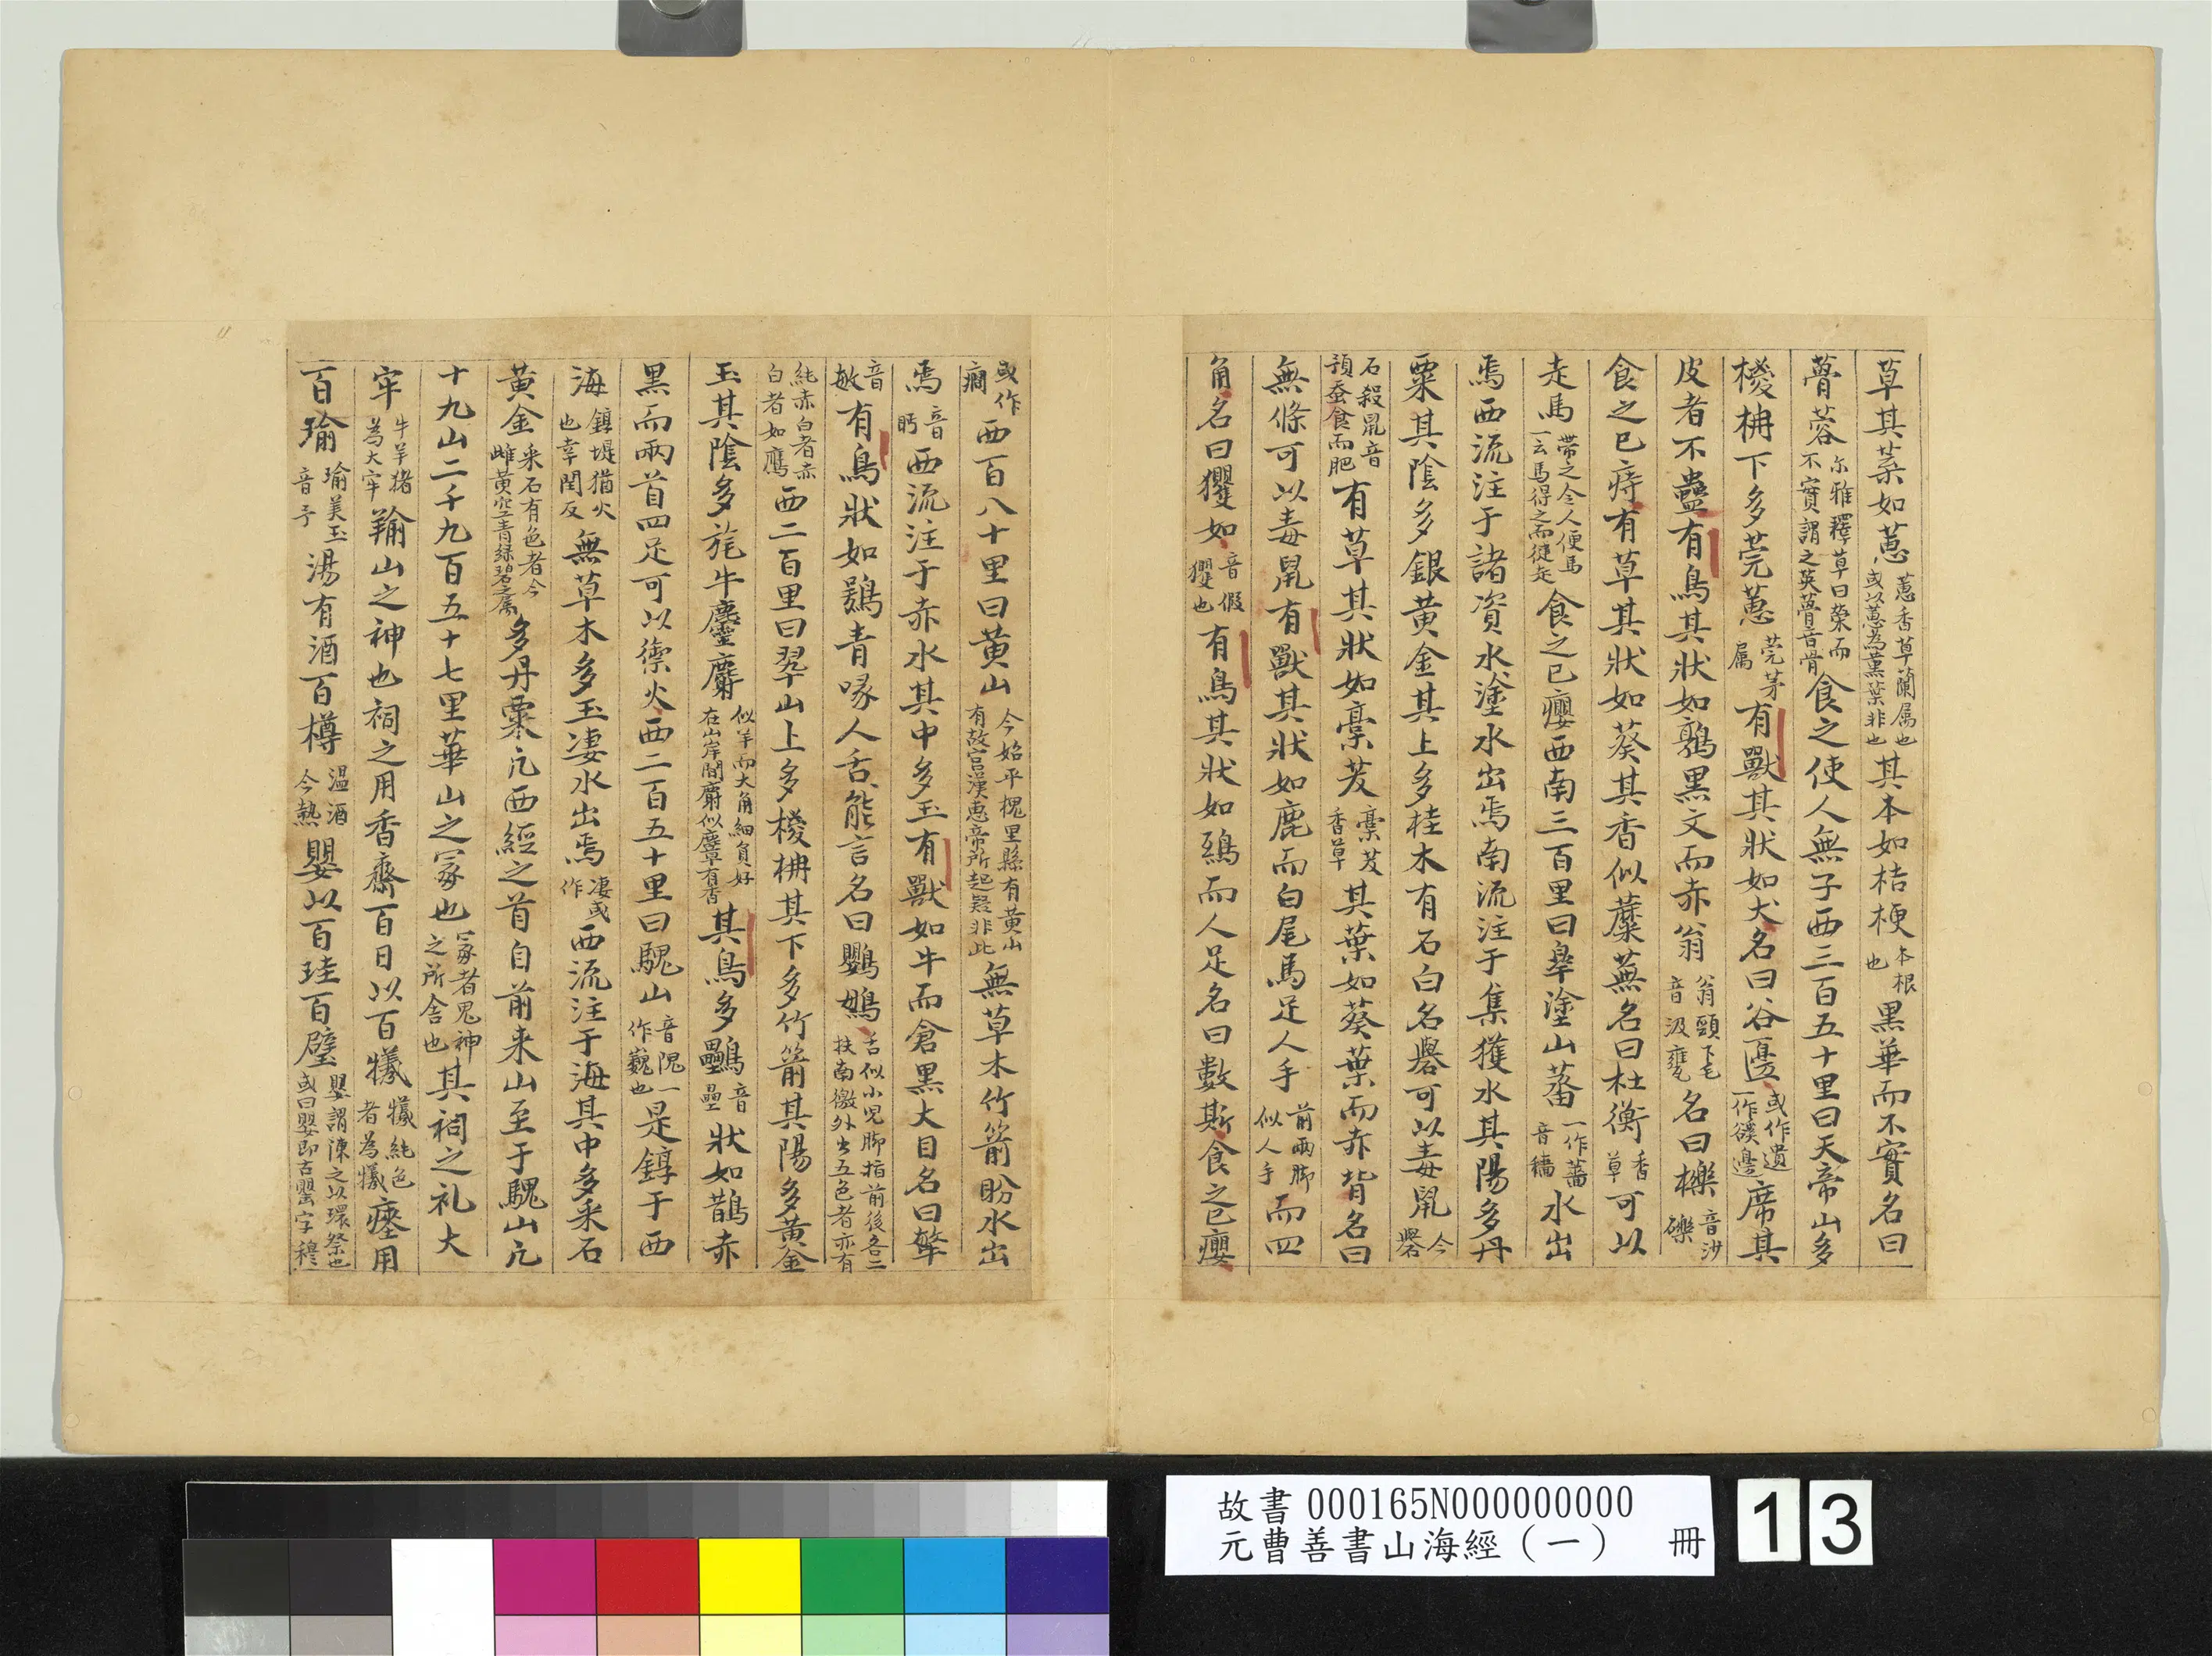 草其葉如蕙蕙香草蘭属也或以蕙為薰葉非也其本如桔梗本根也黒華而不實名曰
蓇蓉尔雅釋草曰榮而不實謂之英蓇音骨食之使人無子西三百五十里曰天帝山多
椶枬下多莞蕙莞茅属有獸其状如犬名曰谷邊或作遺一作谿邊席其
皮者不蠱有鳥其状如鶉黒文而赤翁翁頸下毛音汲甕名曰櫟音沙礫
食之已痔有草其状如葵其香似蘪蕪名曰杜衡香草可以
走馬带之令人便馬一云馬得之而徤走食之已癭西南三百里曰皋塗山蕃一作薔音穡水出
焉西流注于諸資水塗水出焉南流注于集獲水其陽多丹
粟其陰多銀黄金其上多桂木有石白名礜可以毒鼠今礜
石殺鼠音預蚕食而肥有草其状如稾茇稾茇香草其葉如葵葉而赤背名曰
無條可以毒鼠有獸其状如鹿而白尾馬足人手前兩脚似人手而四
角名曰玃如音假玃也有鳥其状如鴟而人足名曰數斯食之已癭
或作癎西百八十里曰黄山今始平槐里縣有黄山有故宫漢恵帝所起疑非此無草木竹箭盼水出
焉音眄西流注于赤水其中多玉有獸如牛而倉黒大目名曰㹂
音敏有鳥状如鴞青喙人舌能言名曰鸚䳇舌似小児脚指前後各二扶南徼外出五色者亦有
純赤白者赤白者如鷹西二百里曰翠山上多椶枬其下多竹箭其陽多黄金
玉其陰多旄牛麢麝似羊而大角細負好在山岸間麝似麞有香其鳥多鸓音壘状如鵲赤
黒而兩首四足可以禦火西二百五十里曰騩山音隗一作巍也是錞于西
海錞堤猶火也章閏反無草木多玉凄水出焉凄或作西流注于海其中多采石
黄金采石有色者今雌黄空青緑碧之属多丹粟凢西經之首自前来山至于騩山凢
十九山二千九百五十七里華山之冢也冢者鬼神之所舎也其祠之礼大
牢牛羊猪為大牢羭山之神也祠之用香齋百日以百犧犧純色者為犧瘞用
百瑜瑜美玉音予湯有酒百樽温酒令熱嬰以百珪百璧嬰謂陳之以環祭也或曰嬰即古罌字穆
故書 000165N000000000
元曹善書山海經（一） 冊
13